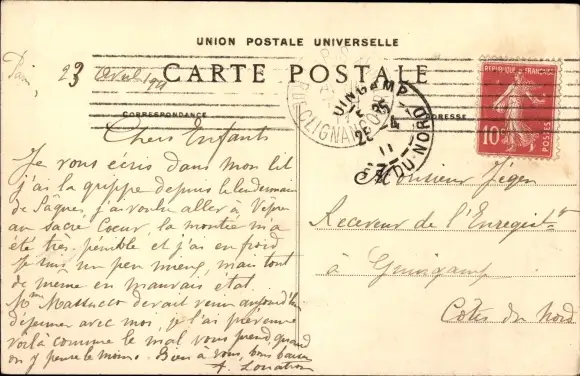 UNION POSTALE UNIVERSELLE
CARTE POSTALE
CORRESPONDANCE
ADRESSE
REPUBLIQUE FRANÇAISE
10c
POSTES
GUINGAMP
25 4
11
CÔTES DU NORD
RUE CLIGNANCOURT
23 Avril 1911
Chers Enfants
Je vous écris dans mon lit
j'ai la grippe depuis le lendemain
de Pâques, j'ai voulu aller à Vêpres
au Sacré Coeur, la montée m'a
été très pénible et j'ai eu froid
Je suis un peu mieux, mais tout
de même en mauvais état.
Mme Massucco devait venir aujourd'hui
déjeuner avec moi, je l'ai prévenue
voilà comme le mal vous prend quand
on y pense le moins. Bien à vous, bons baisers
Monsieur Jégou
Receveur de l'Enregistt
à Guingamp
Côtes du Nord